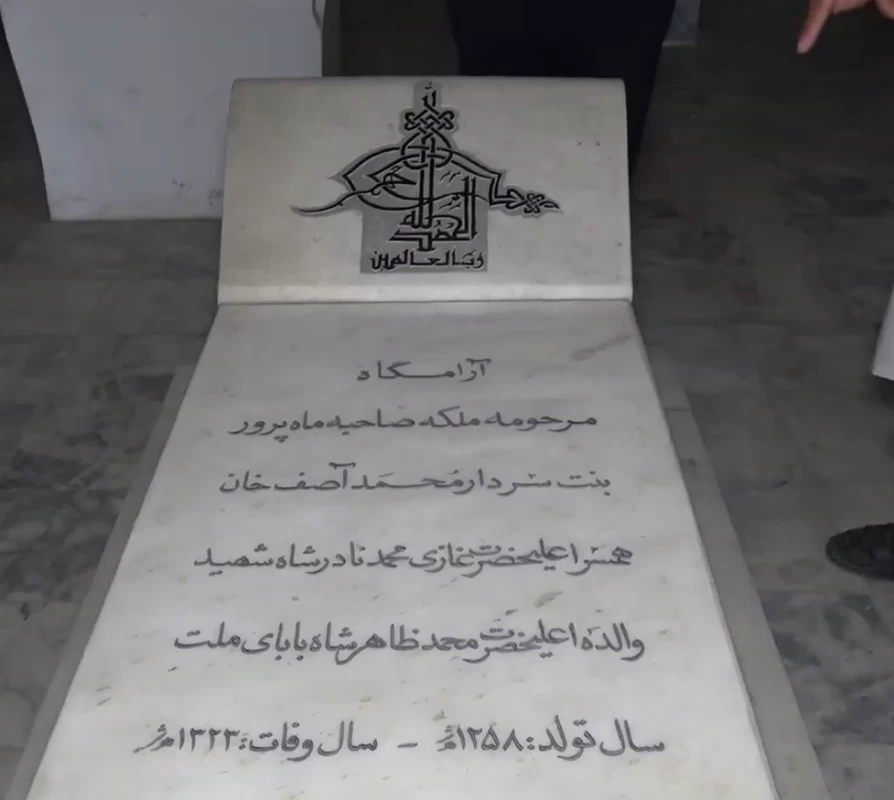 الله الصمد
رب العالمين
آرامگاه
مرحومه ملکه صاحبه ماه پرور
بنت سردار مُحمَد آصف خان
همسر اعلیحضرت غازی محمد نادر شاه شهید
والدهٔ اعلیحضرت محمد ظاهر شاه بابای ملت
سال تولد: ۱۲۵۸ هـ ش – سال وفات: ۱۳۲۳ هـ ش